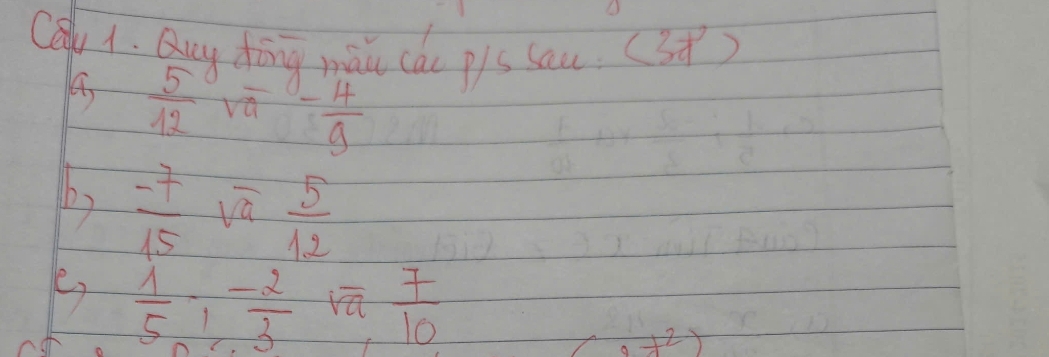 Câu 1. Quy đồng mẫu các p/s sau: (3đ)
a, 5/12 và -4/9
b, -7/15 và 5/12
c, 1/5 ; -2/3 và 7/10